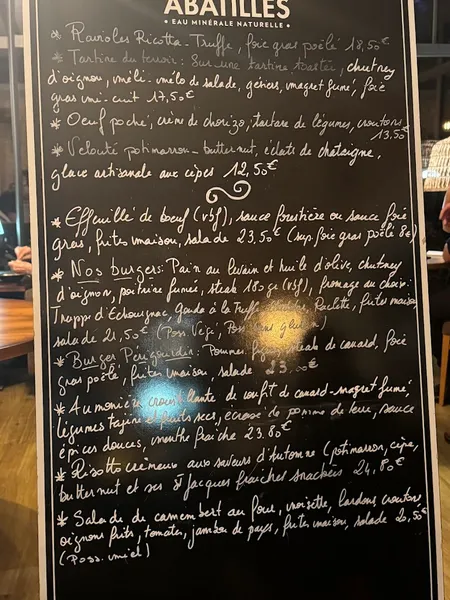 ABATILLES
• EAU MINÉRALE NATURELLE •
* Ravioles Ricotta - Truffe, foie gras poêlé 18,50€
* Tartine du terroir: Sur une tartine toastée, chutney
d'oignon, méli-mélo de salade, gésiers, magret fumé, foie
gras mi-cuit 17,50€
* Oeuf poché, crème de chorizo, tartare de légumes, croutons
13,50€
* Velouté potimarron-butternut, éclats de chataigne,
glace artisanale aux cèpes 12,50€
* Effeuillé de boeuf (vbf), sauce forestière ou sauce foie
gras, frites maison, salade 23,50€ (sup. foie gras poêlé 8€)
* Nos burgers: Pain au levain et huile d'olive, chutney
d'oignon, poitrine fumée, steak 180gr (vbf), fromage au choix:
Trappe d'Echourgnac, Gouda à la Truffe, Raclette, frites maison
salade 21,50€ (Poss. Végé, Poss. sans gluten)
* Burger Périgourdin: Pommes, steak de canard, foie
gras poêlé, frites maison, salade
* Aumonière croustillante de confit de canard-magret fumé,
légumes tajine et fruits secs, écrasé de pomme de terre, sauce
épices douces, menthe fraiche 23.80€
* Risotto crémeux aux saveurs d'Automne (potimarron, cèpe,
butternut et ses St Jacques fraiches snackées 24,80€
* Salade de camembert au four, noisette, lardons, croutons,
oignons frits, tomates, jambon de pays, frites maison, salade 20,50€
(Poss. miel)